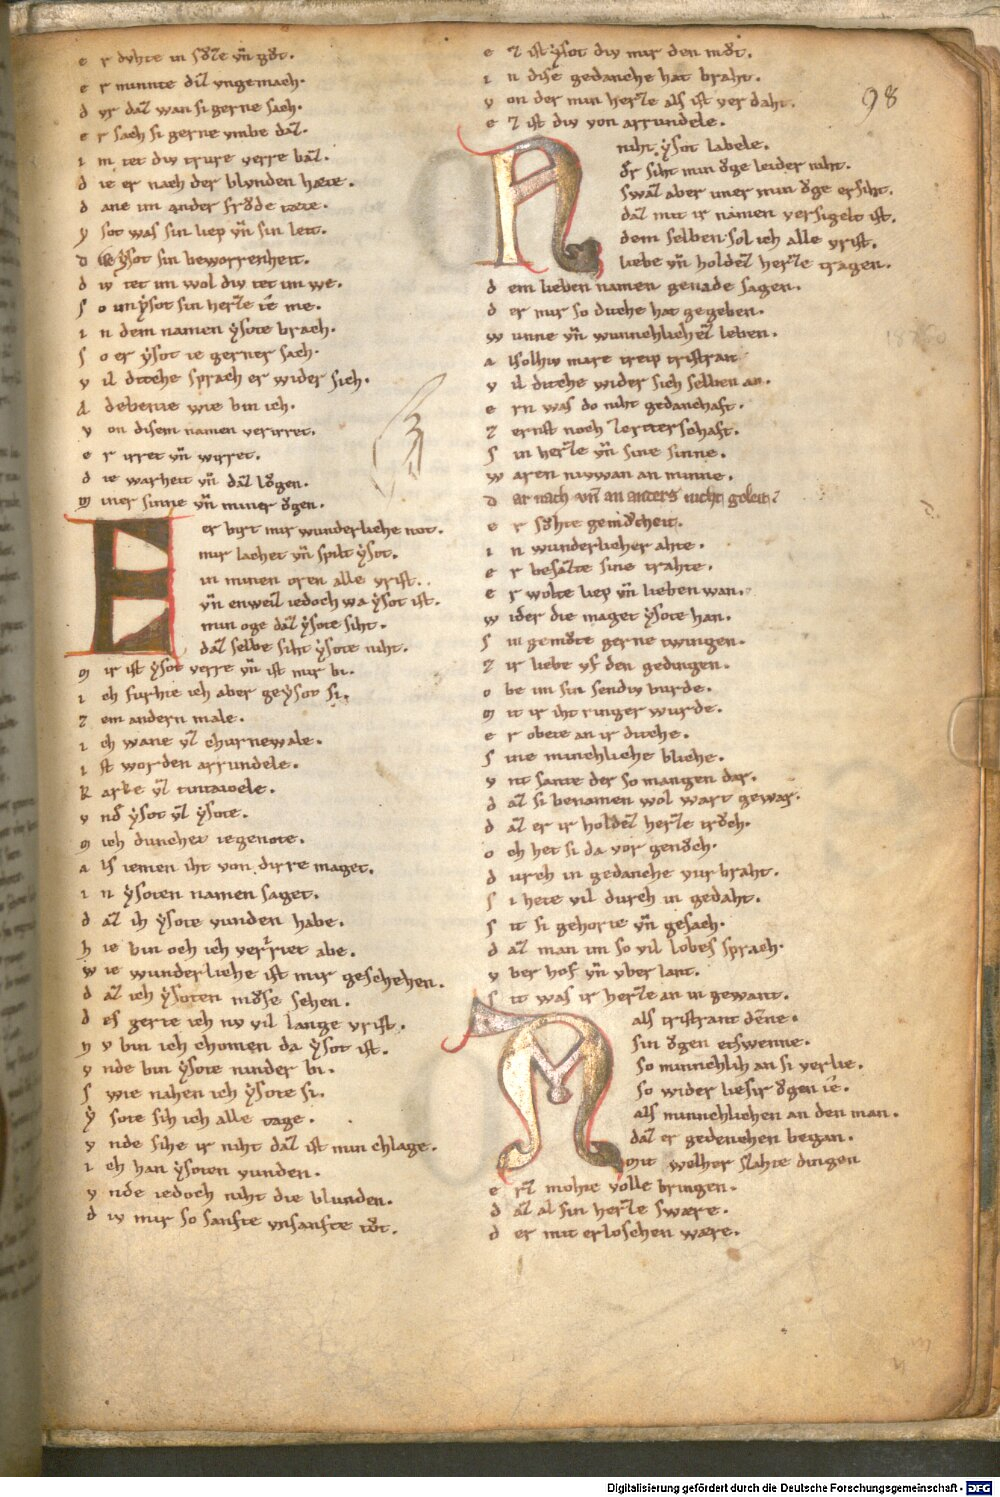 e r dvhte in sůze vn̄ gůt.
e r minnte diz vngemach.
d vr daz wan si gerne sach.
e r sach si gerne vmbe daz.
i m tet div trure verre baz.
d ie er nach der blvnden hæte.
d ane im ander frůde tæte.
y sot was sin liep vn̄ sin leit.
d iv ẏsot sin beworrenheit.
d iv tet im wol div tet im we.
s o im ẏsot sin herze ie me.
i n dem namen ẏsote brach.
s o er ẏsot ie gerner sach.
v il dicche sprach er wider sich.
A debenie wie bin ich.
v on disem namen verirret.
e r irret vn̄ wirret.
d ie warheit vn̄ daz lǒgen.
m iner sinne vn̄ miner ǒgen.
E er birt mir wunderliche not.
mir lachet vn̄ spilt ẏsot.
in minen oren alle vrist.
vn̄ enweiz iedoch wa ẏsot ist.
min oge daz ẏsote siht.
daz selbe siht ẏsote niht.
m ir ist ẏsot verre vn̄ ist mir bi.
i ch furhte ich aber geẏsot si.
z em andern male.
i ch wæne vz churnewale.
i st worden arrundele.
k arke vz tintaioele.
v nd ẏsot vz ẏsote.
m ich dunchet iegenote.
a ls iemen iht von dirre maget.
i n ẏsoten namen saget.
d az ih ẏsote vunden habe.
h ie bin och ich verirret abe.
w ie wunderliche ist mir geschehen.
d az ich ẏsoten mǒse sehen.
d es gerte ich nv vil lange vrist.
n v bin ich chomen da ẏsot ist.
v nde bin ẏsote ninder bi.
s wie nahen ich ẏsote si.
ẏ sote sih ich alle tage.
v nde sihe ir niht daz ist min chlage.
i ch han ẏsoten vunden.
v nde iedoch niht die blunden.
d iv mir so sanfte vnsanfte tǒt.
e z ist ẏsot div mir den mǒt.
i n dise gedanche hat braht.
v on der min herze als ist verdaht.
e z ist div von arrundele.
98
N niht ẏsot labele.
dr siht min ǒge leider niht.
swaz aber imer min ǒge ersiht.
daz mit ir namen versigelt ist.
dem selben sol ich alle vrist.
liebe vn̄ holdez herze tragen.
d em lieben namen genade sagen.
d er mir so dicche hat gegeben.
w unne vn̄ wunnchlichez leben.
a lsolhiv mære treip tristrant
v il dicche wider sich selben an.
e rn was do niht gedanchaft.
z ernst noch ze ritterschaft.
s in herze vn̄ sine sinne.
w aren niwan an minne.
d ar nach vn̄ an anders nicht geleit
e r sǒhte gemǒcheit.
i n wunderlicher ahte.
e r besazte sine trahte.
e r wolte liep vn̄ lieben wan.
w ider die maget ẏsote han.
s in gemǒte gerne twingen.
z ir liebe vf den gedingen.
o be im sin sendiv burde.
m it ir iht ringer wurde.
e r obete an ir dicche.
s ine minchliche bliche.
v nt sante der so mangen dar.
d az si benamen wol wart gewar.
d az er ir holdez herze trǒch.
o ch het si da vor genǒch.
d urch in gedanche vur braht.
s i hete vil durch in gedaht.
s it si gehorte vn̄ gesach.
d az man im so vil lobes sprach.
v ber hof vn̄ vber lant.
s it was ir herze an in gewant.
als tristrant denne.
sin ǒgen etswenne.
so minnchlih an si verlie.
so wider liesir ǒgen ie.
als minnchlichen an den man.
daz er gedenchen began.
mit welher slahte dingen
e rz mohte volle bringen.
d az al sin herze swære.
d er mit erloschen wære.
Digitalisierung gefördert durch die Deutsche Forschungsgemeinschaft - DFG